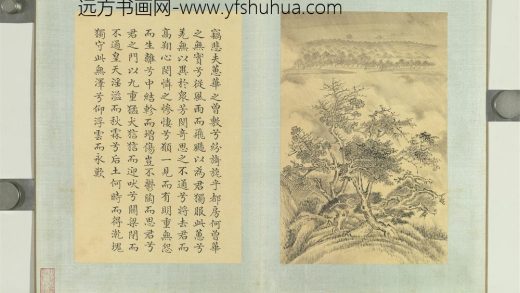 远方书画网-www.yfshuhua.com
竊悲夫蕙華之曾敷兮紛旖旎乎都房何曾華
之無實兮從風雨而飛颺以為君獨服此蕙兮
羌無以異於衆芳閔奇思之不通兮將去君而
高翔心閔憐之慘悽兮願一見而有明重無怨
而生離兮中結軫而增傷豈不鬱陶而思君兮
君之門以九重猛犬狺狺而迎吠兮關梁閉而
不通皇天淫溢而秋霖兮后土何時而得漧塊
獨守此無澤兮仰浮雲而永歎